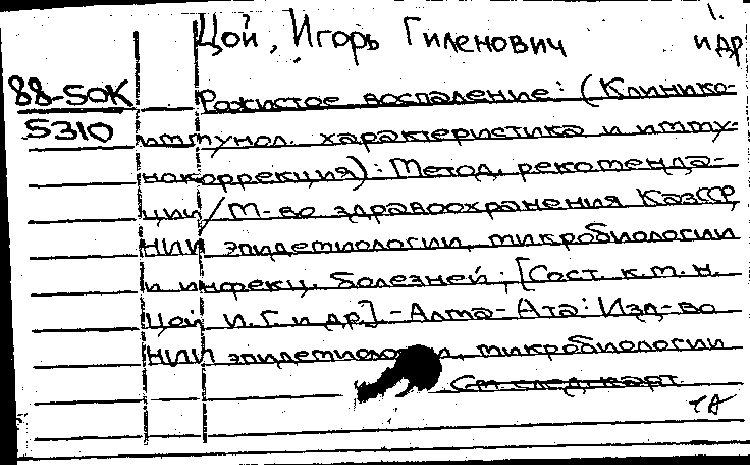 1.
Цой, Игорь Гиленович и др
88-50К
5310
Рожистое воспаление: (Клинико-
иммунол. характеристика и имму-
нокоррекция): Метод. рекоменда-
ции / М-во здравоохранения КазССР,
НИИ эпидемиологии, микробиологии
и инфекц. болезней; [Сост. к.м.н.
Цой И.Г. и др.].-Алма-Ата: Изд-во
НИИ эпидемиологии, микробиологии
См след карт.